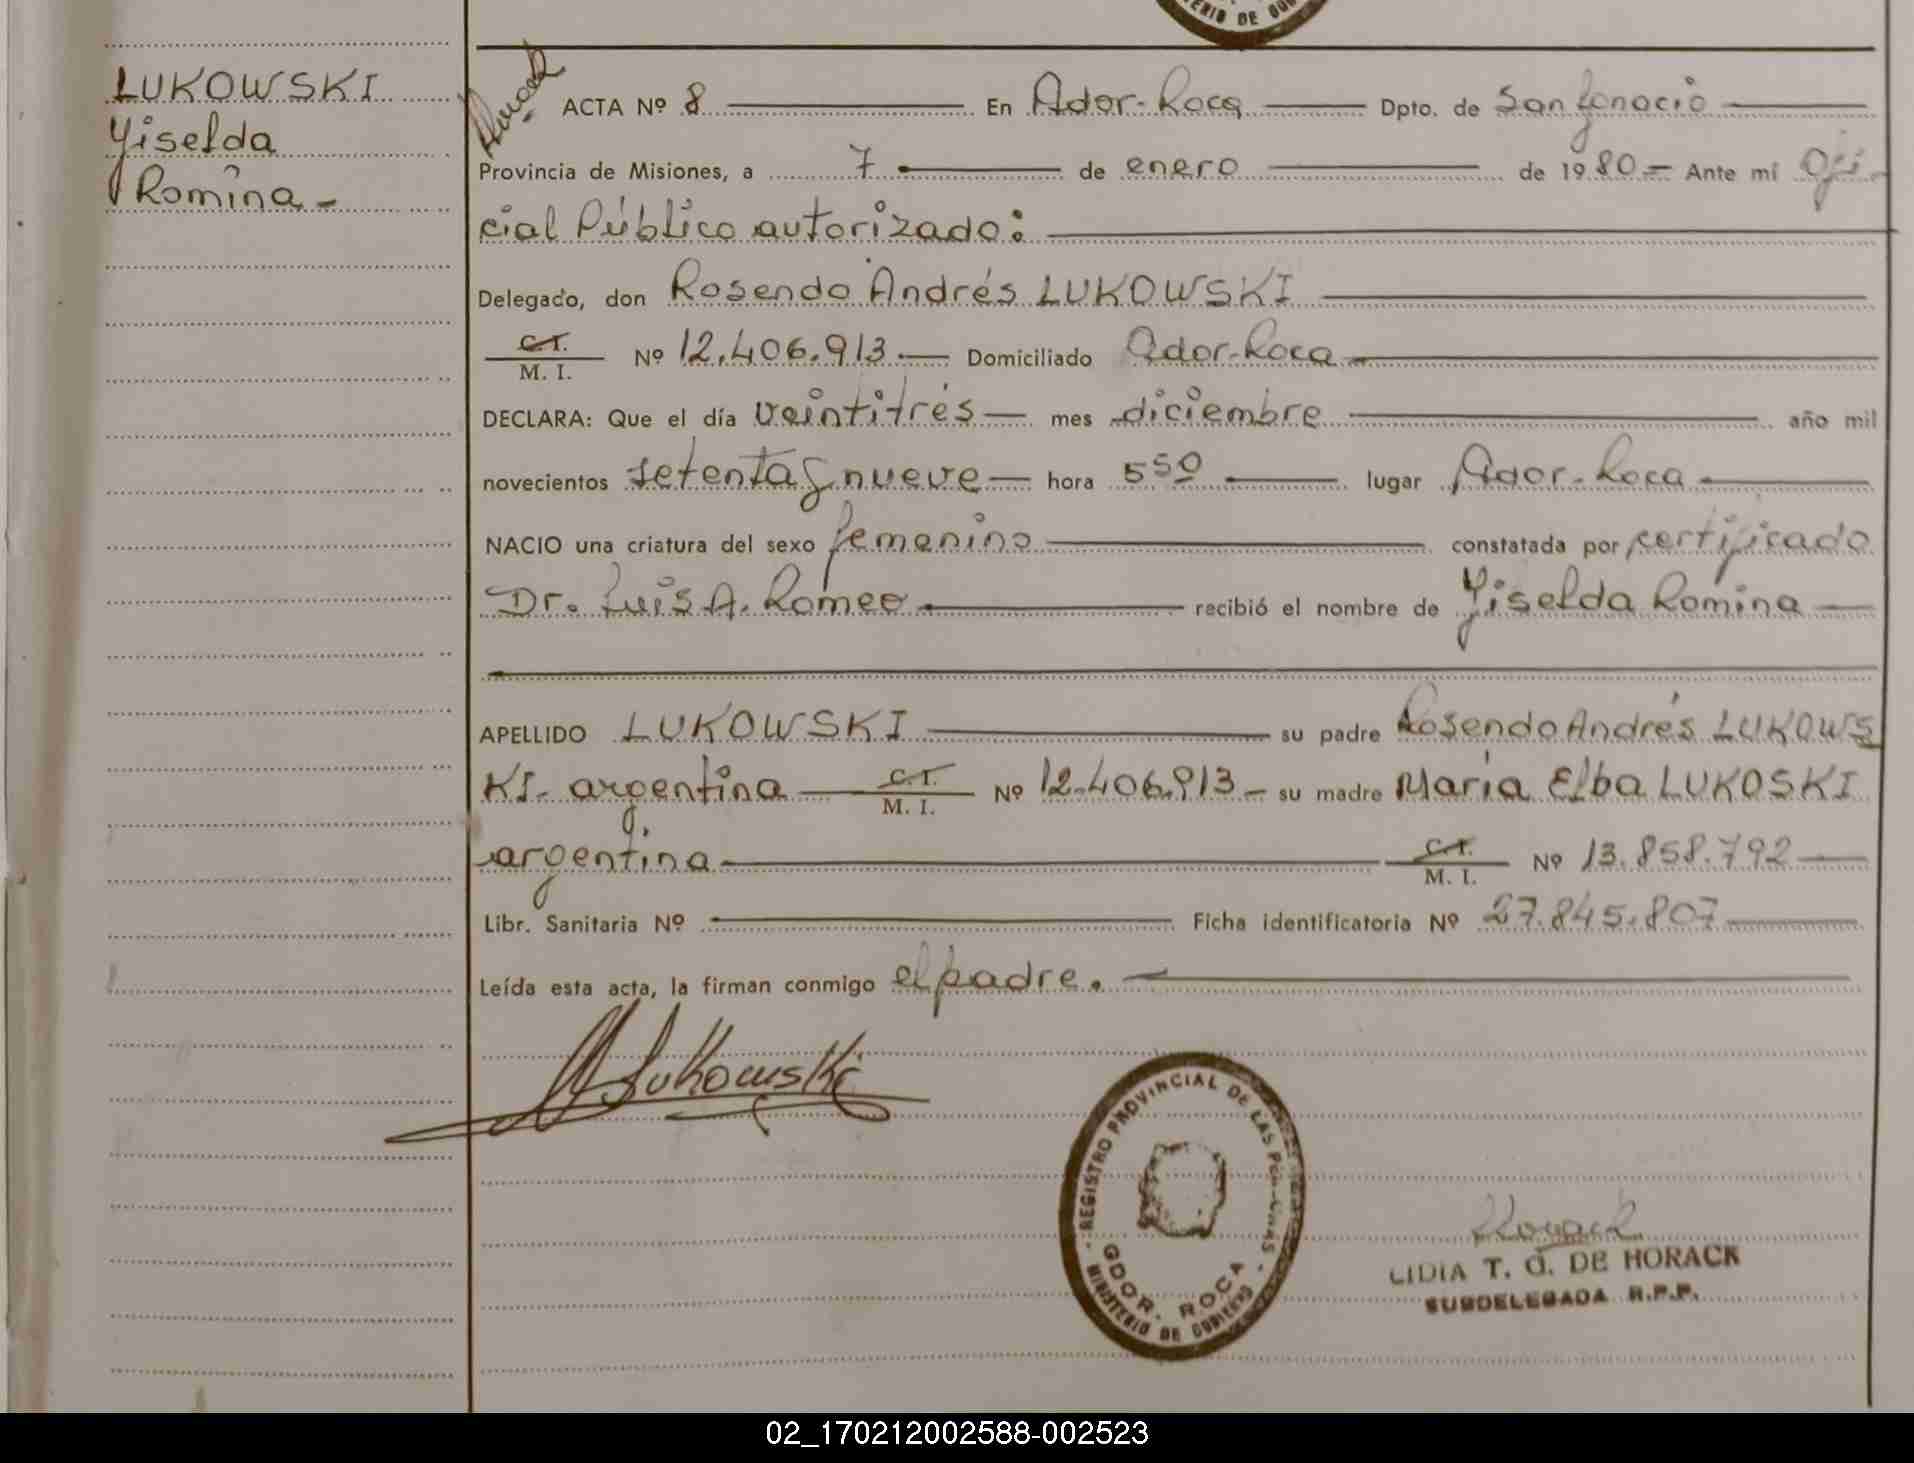 MINISTERIO DE GOB
LUKOWSKI
Yiselda
Romina -
Horack
ACTA Nº 8 En Gdor. Roca Dpto. de San Ignacio
Provincia de Misiones, a 7 de enero de 1980 - Ante mí Ofi-
cial Público autorizado:
Delegado, don Rosendo Andrés LUKOWSKI
C.I.
M. I. Nº 12.406.913.- Domiciliado Gdor. Roca
DECLARA: Que el día veintitrés mes diciembre año mil
novecientos setenta y nueve hora 5 50 lugar Gdor. Roca
NACIO una criatura del sexo femenino constatada por certificado
Dr. Luis A. Romeo recibió el nombre de Yiselda Romina
APELLIDO LUKOWSKI su padre Rosendo Andrés LUKOWS
KI- argentina C.I. M. I. Nº 12.406.913- su madre María Elba LUKOSKI
argentina C.I. M. I. Nº 13.858.792
Libr. Sanitaria Nº Ficha identificatoria Nº 27.845.807
Leída esta acta, la firman conmigo el padre.
Lukowski
REGISTRO PROVINCIAL DE LAS PERSONAS
GDOR. ROCA
MINISTERIO DE GOBIERNO
Horack
LIDIA T. G. DE HORACK
SUBDELEGADA R.P.P.
02_170212002588-002523